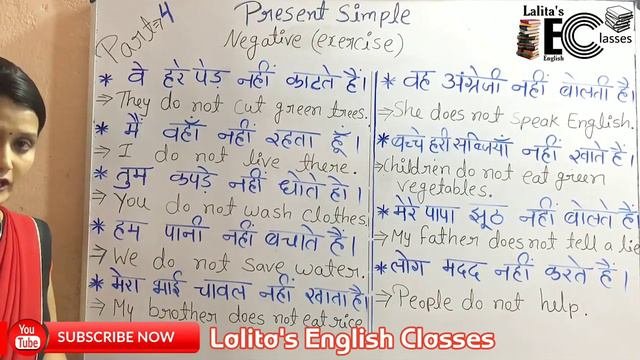 Part-4
Present Simple
Negative (exercise)
Lalita's
EC
Classes
English
* वे हरे पेड़ नहीं काटते हैं।
⇒ They do not cut green trees.
* मैं वहाँ नहीं रहता हूँ।
⇒ I do not live there.
* तुम कपड़े नहीं धोते हो।
⇒ You do not wash clothes.
* हम पानी नहीं बचाते हैं।
⇒ We do not save water.
* मेरा भाई चावल नहीं खाता है।
⇒ My brother does not eat rice
* वह अंग्रेजी नहीं बोलती है।
⇒ She does not speak English.
* बच्चे हरी सब्जियाँ नहीं खाते हैं।
⇒ Children do not eat green
vegetables.
* मेरे पापा झूठ नहीं बोलते हैं
⇒ My father does not tell a lie
* लोग मदद नहीं करते हैं।
⇒ People do not help.
You Tube
SUBSCRIBE NOW
Lalita's English Classes